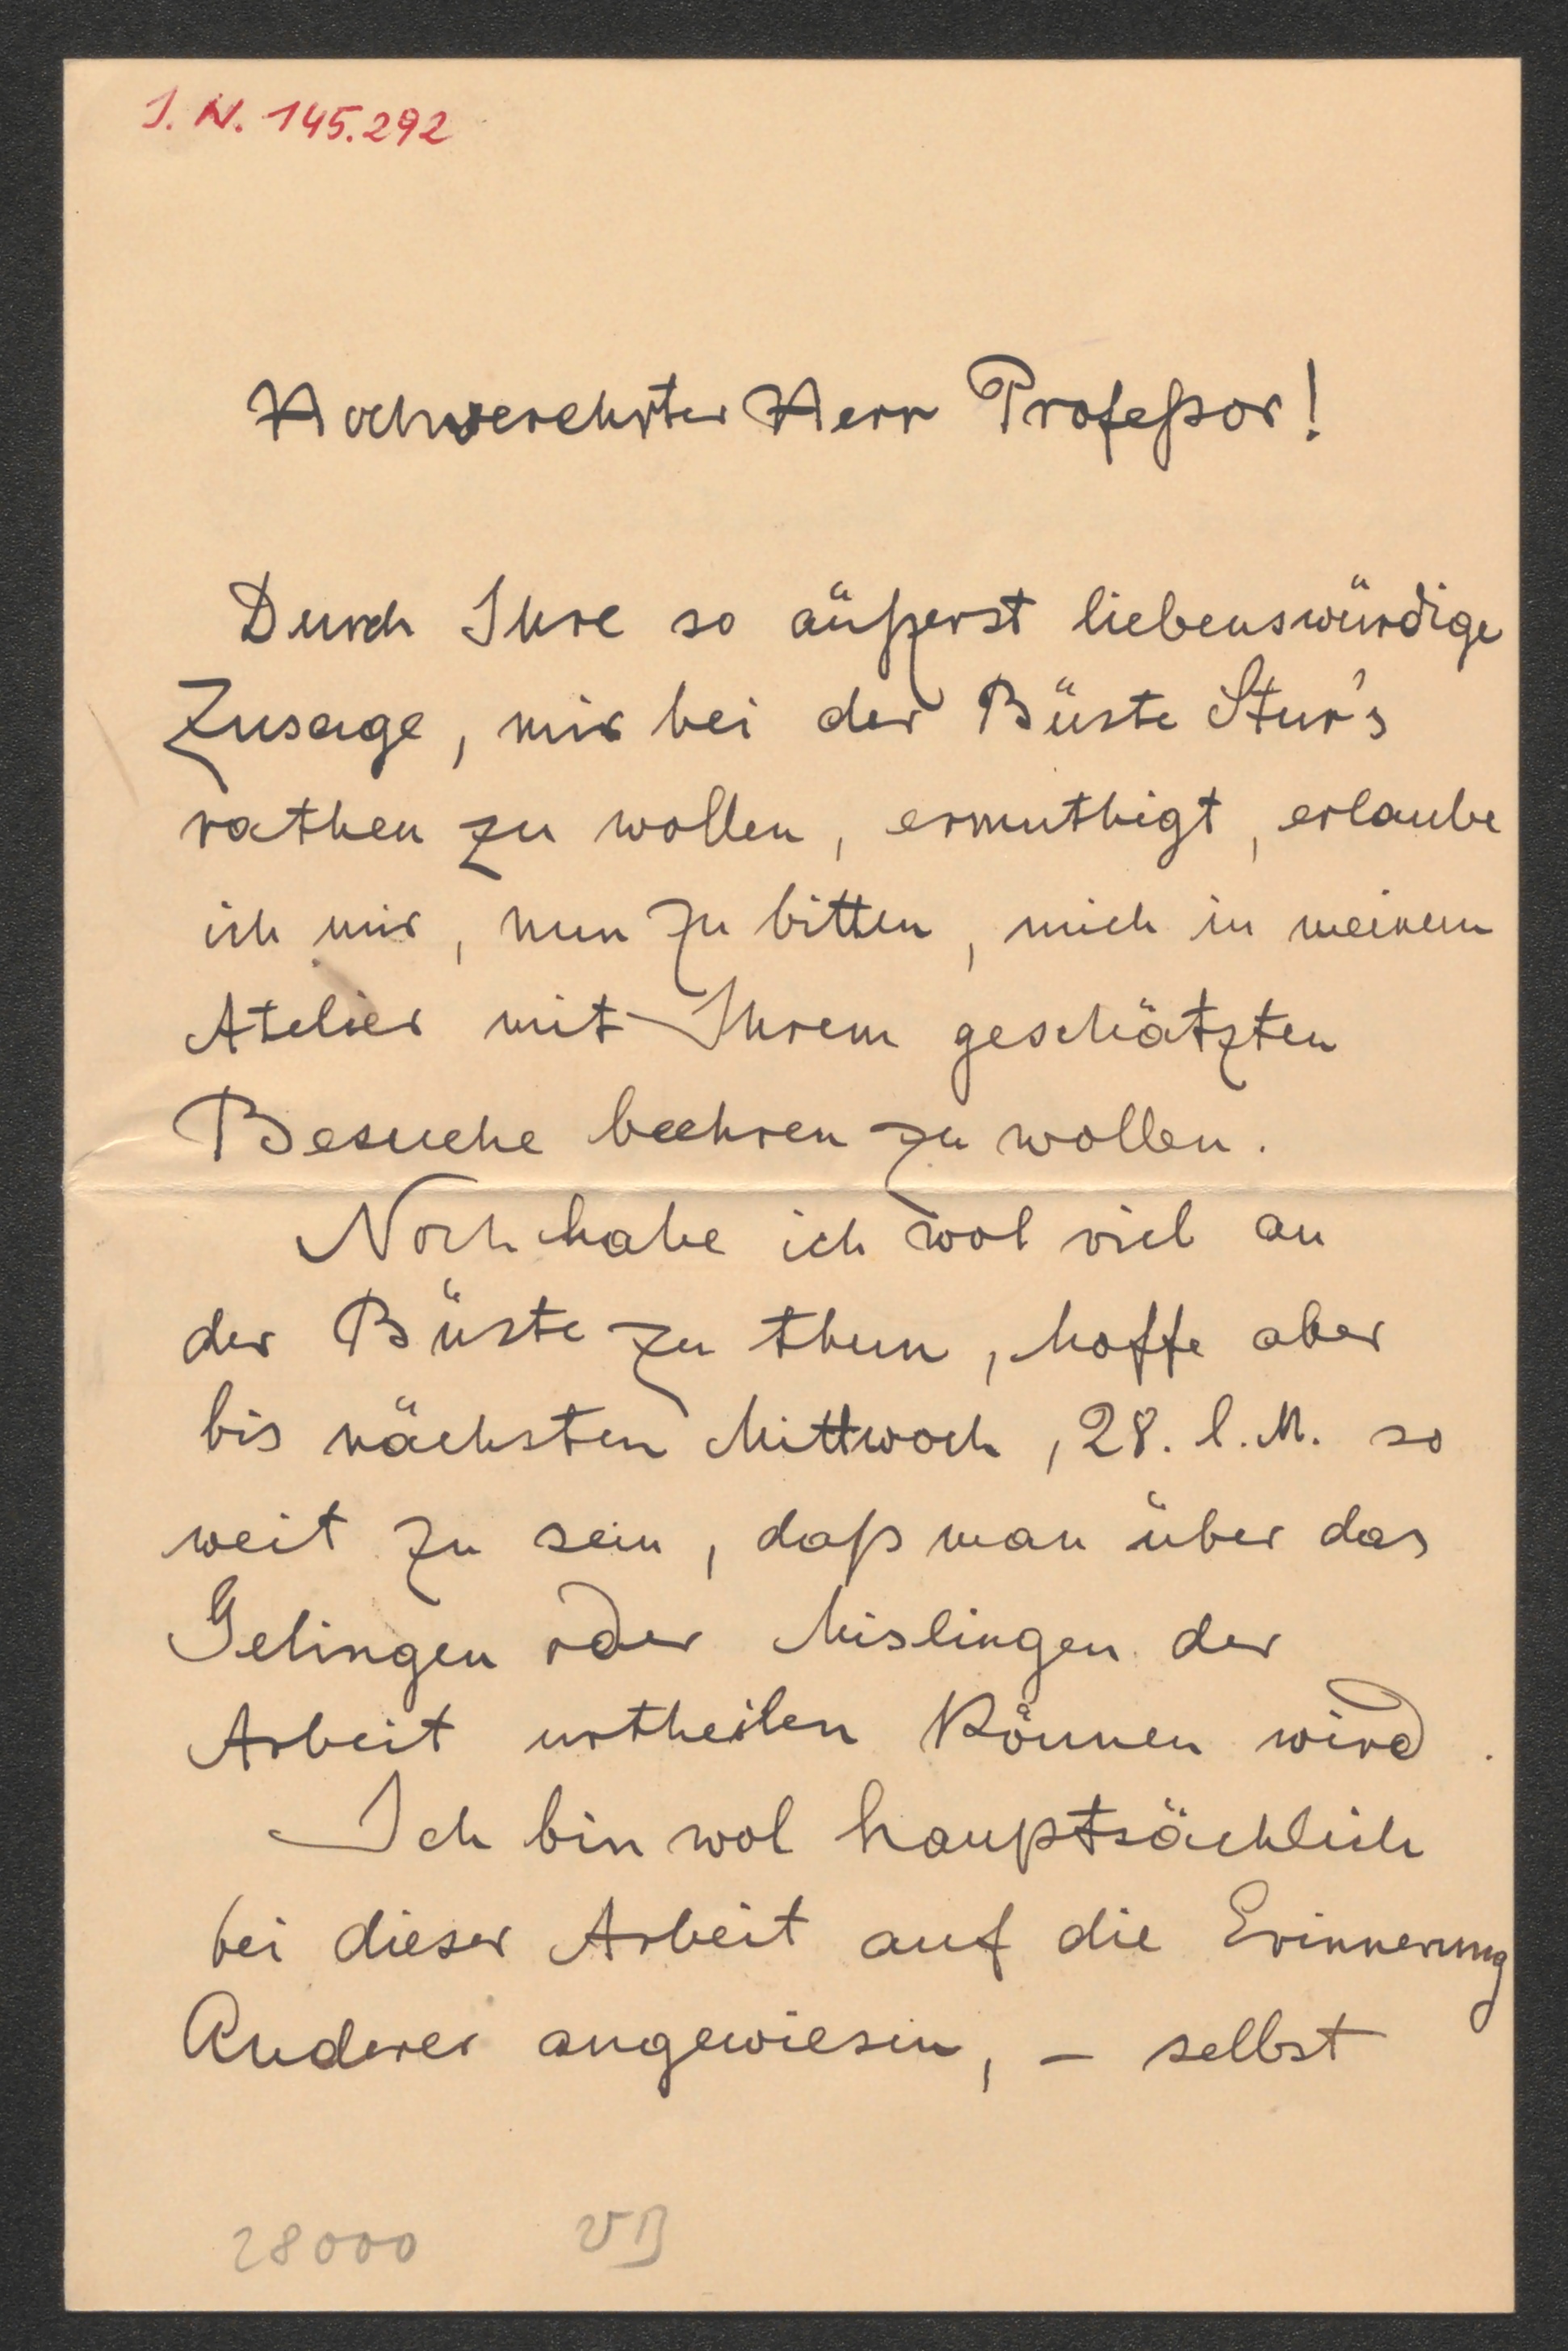 I. N. 145.292
Hochverehrter Herr Profeßor!
Durch Ihre so äußerst liebenswürdige
Zusage, mir bei der Büste Stur's
rathen zu wollen, ermuthigt, erlaube
ich mir, nun zu bitten, mich in meinem
Atelier mit Ihrem geschätzten
Besuche beehren zu wollen.
Noch habe ich wol viel an
der Büste zu thun, hoffe aber
bis nächsten Mittwoch, 28. l. M. so
weit zu sein, daß man über das
Gelingen oder Mislingen der
Arbeit urtheilen können wird.
Ich bin wol hauptsächlich
bei dieser Arbeit auf die Erinnerung
Anderer angewiesen, – selbst
28000 VB